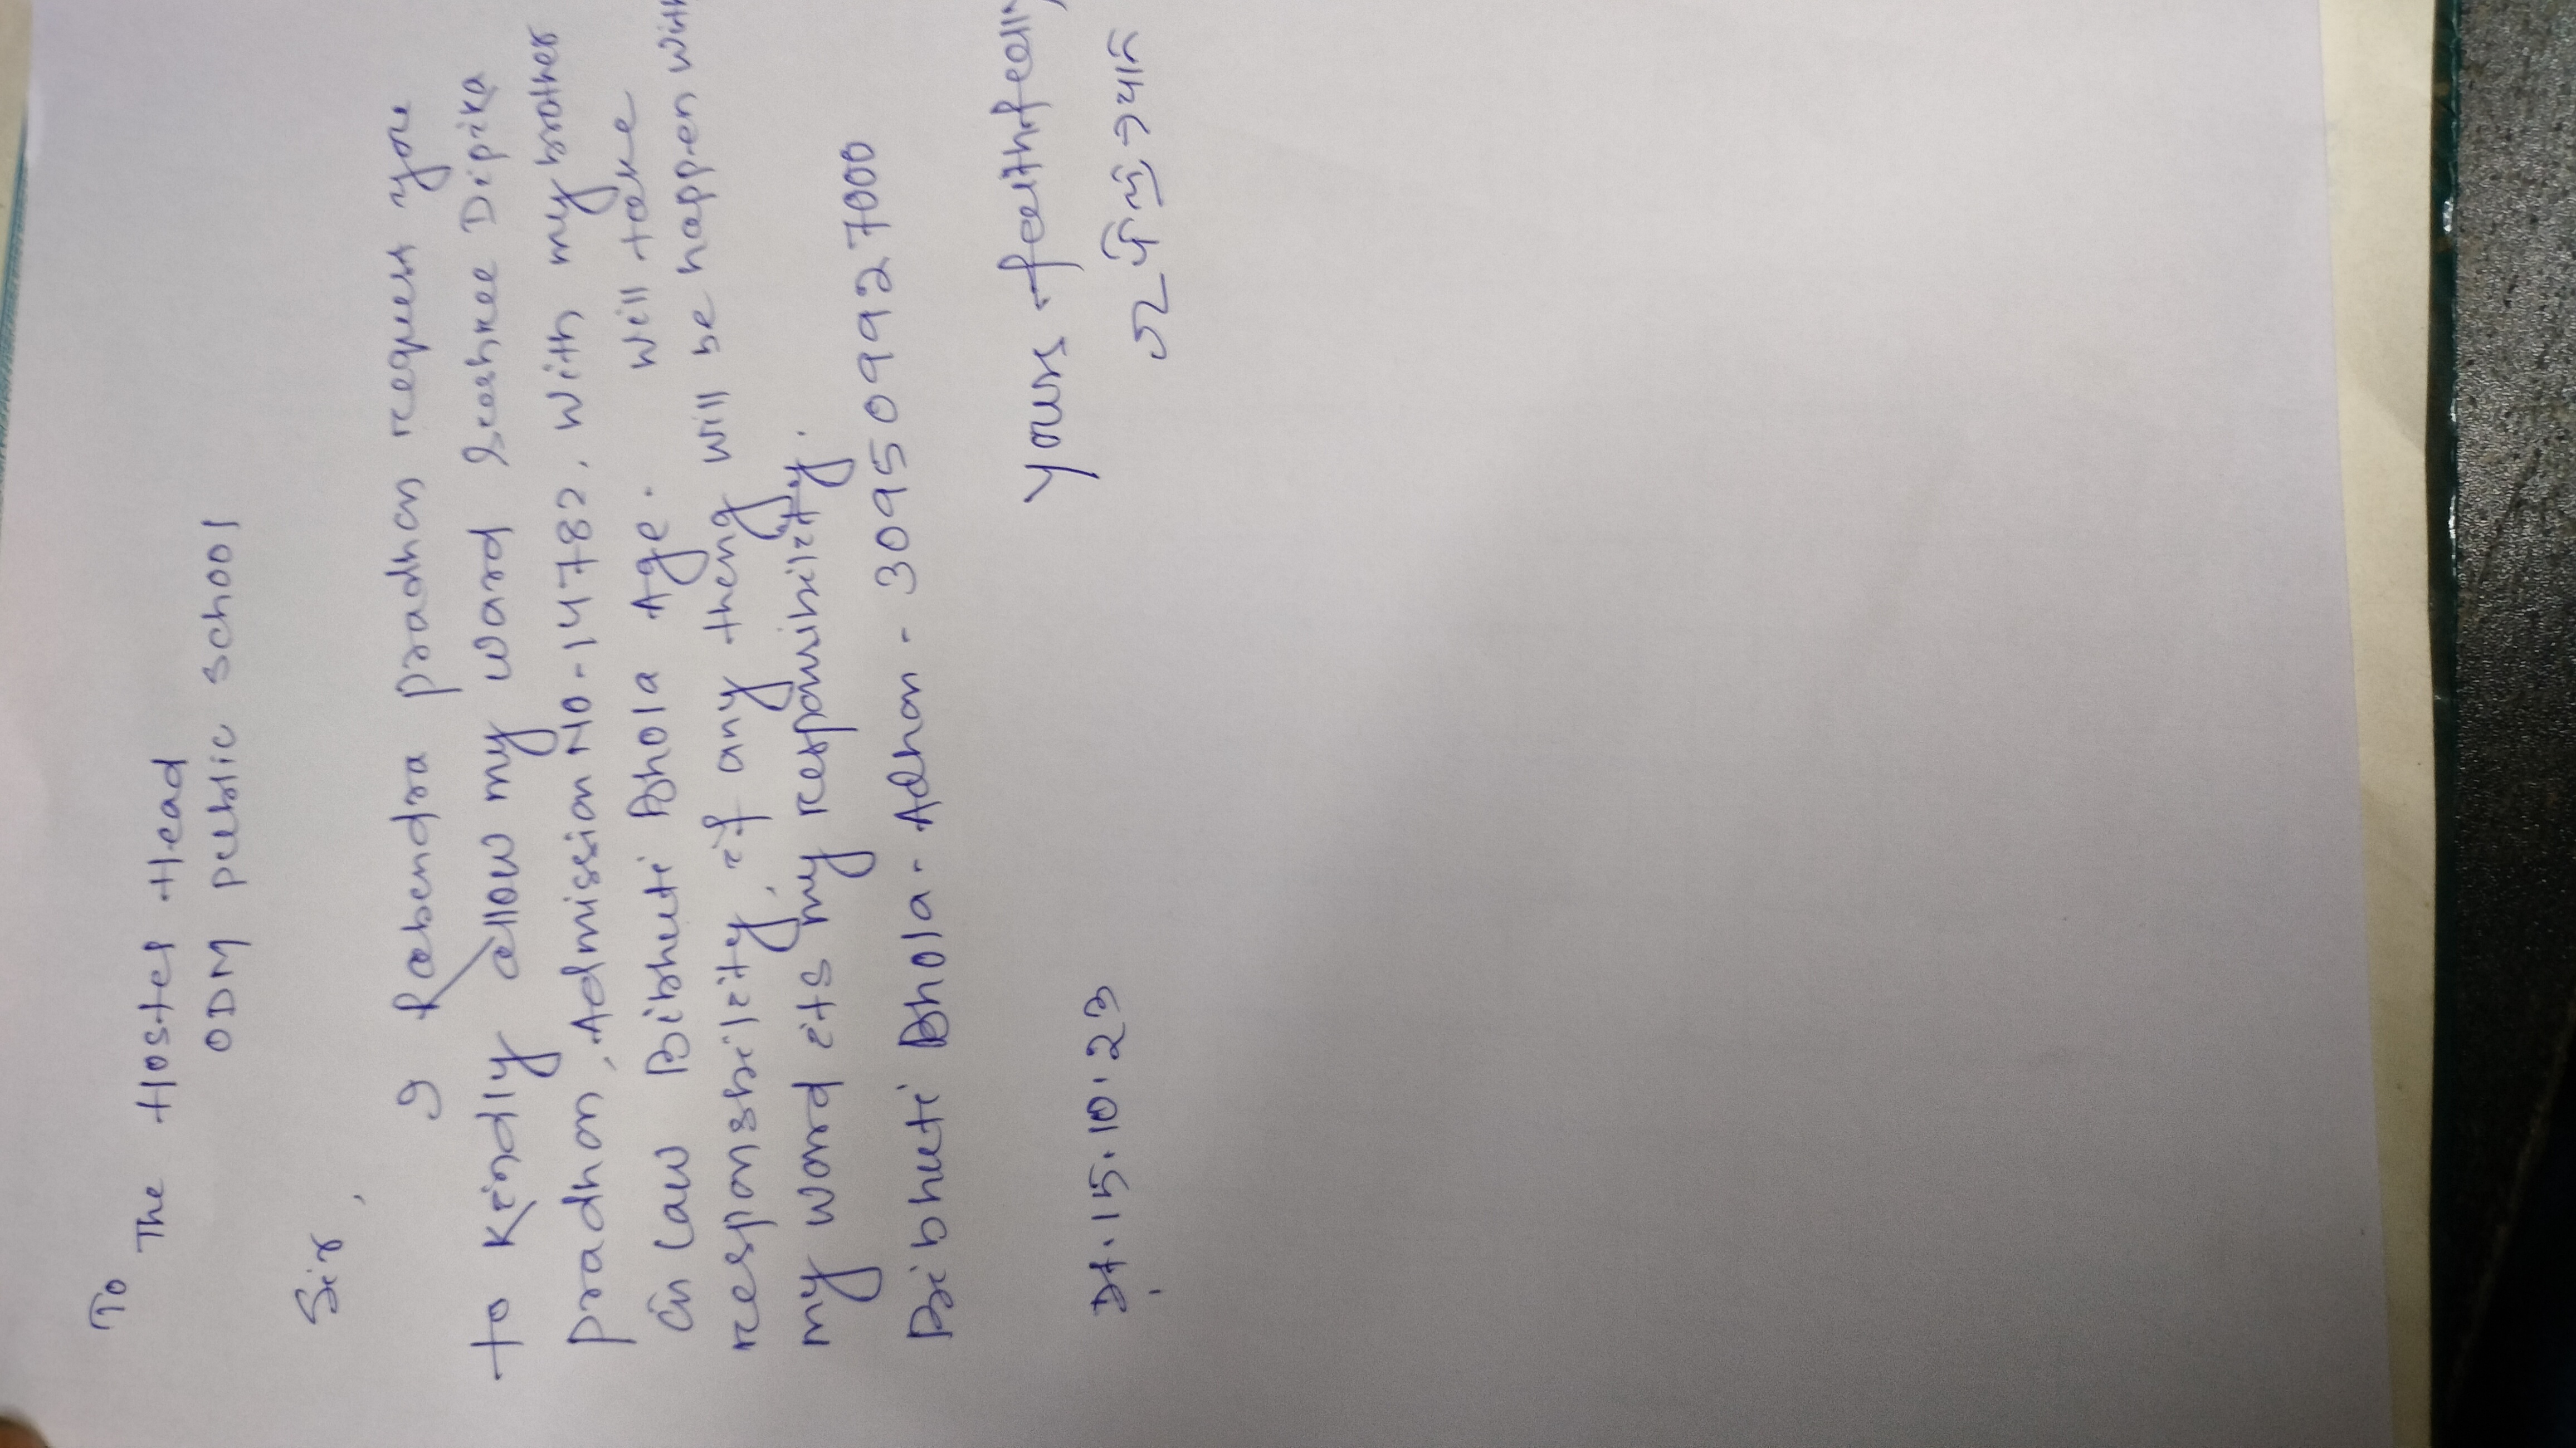 To
The Hostel Head
ODM public school
Sir,
I Rabendra pradhan request you
to Kindly allow my ward Dipika
pradhan, Admission No-14782. With my brother
in Law Bibhuti Bhola Age. Will take
responsbility, if any theng will be happen with
my ward its my responsibility.
Bibhuti Bhola - Adhar - 309509927000
Yours
Dt. 15.10.23